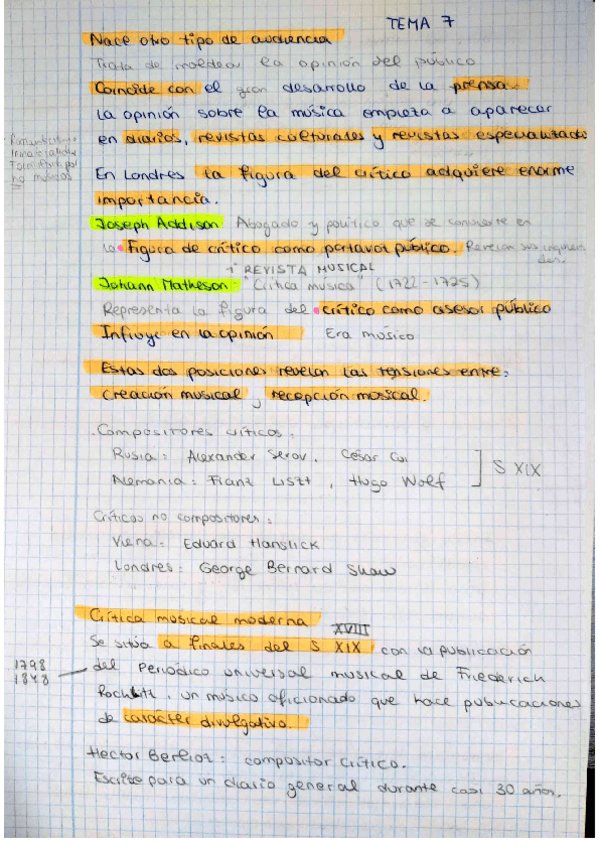 TEMA 7
Nace otro tipo de audiencia
Trata de moldear la opinión del público
Coincide con el gran desarrollo de la prensa.
La opinión sobre la música empieza a aparecer
en diarios, revistas culturales y revistas especializada
no músicos
En Londres la figura del crítico adquiere enorme
importancia.
Joseph Addison. Abogado y político que se convierte en
la figura de crítico como portavoz público. Revelan sus
1ª REVISTA MUSICAL
Johann Matheson - "Crítica música" (1722 - 1725)
Representa la figura del crítico como asesor público
Influye en la opinión Era músico
Estas dos posiciones revelan las tensiones entre:
creación musical y recepción musical.
Compositores críticos:
Rusia: Alexander Serov, César Cui
Alemania: Franz Liszt, Hugo Wolf
S XIX
Críticos no compositores:
Viena: Eduard Hanslick
Londres: George Bernard Shaw
Crítica musical moderna
XVIII
Se sitúa a finales del S XIX con la publicación
1798
1848
del Periódico universal musical de Friederich
Rochlitz, un músico aficionado que hace publicaciones
de carácter divulgativo.
Hector Berlioz: compositor crítico.
Escribe para un diario general durante casi 30 años.